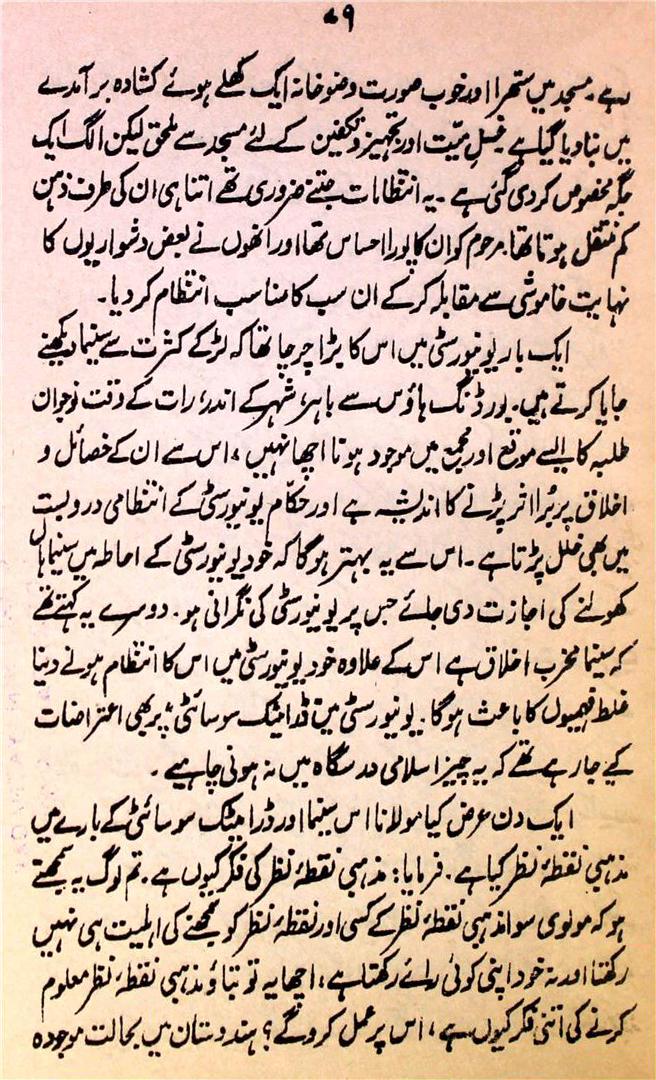 ۷۹
رہے۔ مسجد میں ستھرا اور خوب صورت وضوخانہ ایک کھلے ہوئے کشادہ برآمدے
میں بنا دیا گیا ہے۔ غسلِ میّت اور تجہیز و تکفین کے لئے مسجد سے ملحق لیکن الگ ایک
جگہ مخصوص کر دی گئی ہے۔ یہ انتظامات جتنے ضروری تھے اتنا ہی ان کی طرف ذہن
کم منتقل ہوتا تھا۔ مرحوم کو ان کا پورا احساس تھا اور انھوں نے بعض دشواریوں کا
نہایت خاموشی سے مقابلہ کر کے ان سب کا مناسب انتظام کر دیا۔
ایک بار یونیورسٹی میں اس کا بڑا چرچا تھا کہ لڑکے کثرت سے سنیما دیکھنے
جایا کرتے ہیں۔ بورڈنگ ہاؤس سے باہر، شہر کے اندر، رات کے وقت نوجوان
طلبہ کا ایسے موقع اور مجمع میں موجود ہونا اچھا نہیں، اس سے ان کے خصائل و
اخلاق پر بُرا اثر پڑنے کا اندیشہ ہے اور حکّام یونیورسٹی کے انتظامی در و بست
میں بھی خلل پڑتا ہے۔ اس سے یہ بہتر ہوگا کہ خود یونیورسٹی کے احاطہ میں سنیما ہال
کھولنے کی اجازت دی جائے جس پر یونیورسٹی کی نگرانی ہو۔ دوسرے یہ کہتے تھے
کہ سینما مخرب اخلاق ہے اس کے علاوہ خود یونیورسٹی میں اس کا انتظام ہونے دینا
غلط فہمیوں کا باعث ہوگا۔ یونیورسٹی میں ڈرامیٹک سوسائٹی، پر بھی اعتراضات
کیے جا رہے تھے کہ یہ چیز اسلامی درسگاہ میں نہ ہونی چاہیے۔
ایک دن عرض کیا مولانا اس سنیما اور ڈرامیٹک سوسائٹی کے بارے میں
مذہبی نقطۂ نظر کیا ہے۔ فرمایا: مذہبی نقطۂ نظر کی فکر کیوں ہے۔ تم لوگ یہ سمجھتے
ہو کہ مولوی سوا مذہبی نقطۂ نظر کے کسی اور نقطۂ نظر کو سمجھنے کی اہلیت ہی نہیں
رکھتا اور نہ خود اپنی کوئی رائے رکھتا ہے، اچھا یہ تو بتاؤ مذہبی نقطۂ نظر معلوم
کرنے کی اتنی فکر کیوں ہے، اس پر عمل کرو گے؟ ہندوستان میں بحالت موجودہ